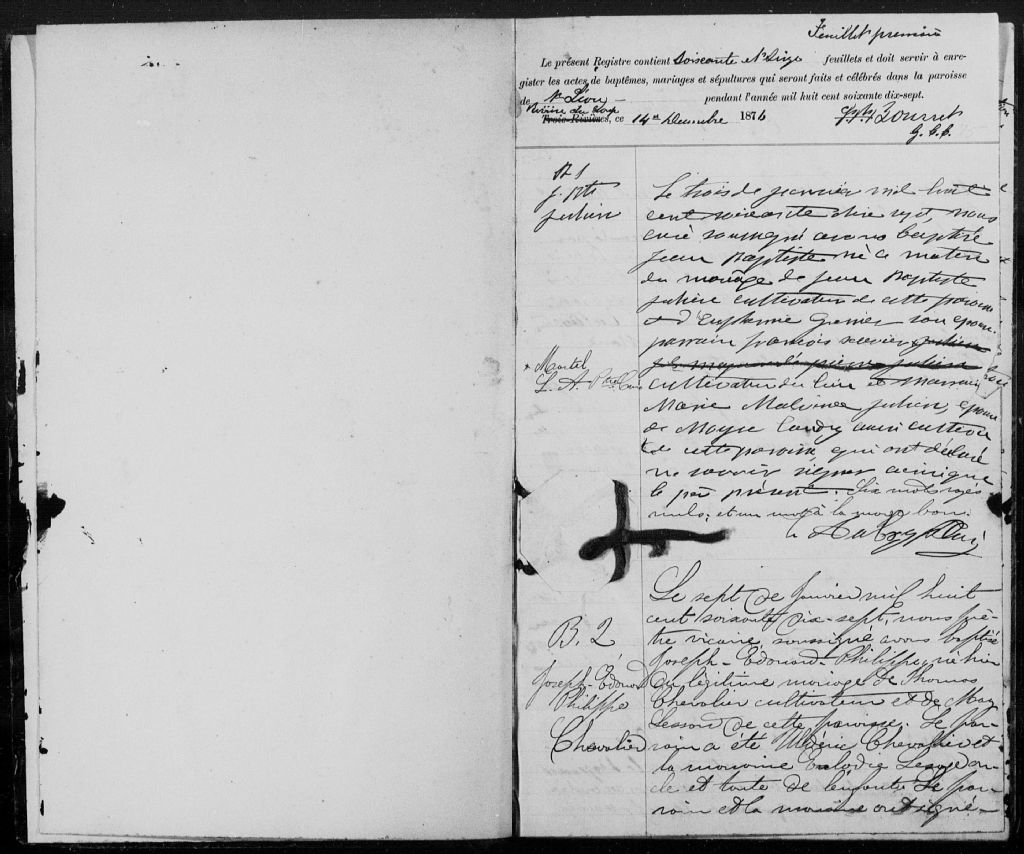 Feuillet premier
Le présent Registre contient soixante et seize feuillets et doit servir à enre-
gister les actes de baptêmes, mariages et sépultures qui seront faits et célébrés dans la paroisse
de St Léon pendant l'année mil huit cent soixante dix-sept.
Rivière du Loup
Trois-Rivières, ce 14 Décembre 1876 Bourret
G. C. C.
B 1
J. Bte
Julien
Le trois de janvier mil huit
cent soixante dix sept, nous
curé soussigné avons baptisé
Jean Baptiste né ce matin
du mariage de Jean Baptiste
Julien cultivateur de cette paroisse
& d'Euphemie Grenier son épouse.
parrain françois xavier Julien
pierre Julien
* Martel
L. A. Ptre Curé
cultivateur du lieu et marraine
Marie Malvina Julien, épouse
de Moyse Landry aussi cultiva
de cette paroisse, qui ont déclaré
ne savoir signer ainsi que
le père présent. Six mots rayés
nuls, et un mot à la marge bon.
B. 2
Joseph-Édouard
Philippe
Chevalier
Le sept de Janvier mil huit
cent soixante dix-sept, nous prê-
tre vicaire, soussigné avons baptisé
Joseph-Édouard-Philippe, né hier
du légitime mariage de Thomas
Chevalier cultivateur et de
Lessard de cette paroisse. Le par-
rain a été Ulderic Chevallier et
la marraine on-
cle et tante de l'enfant. Le par-
rain et la marraine ont signé-